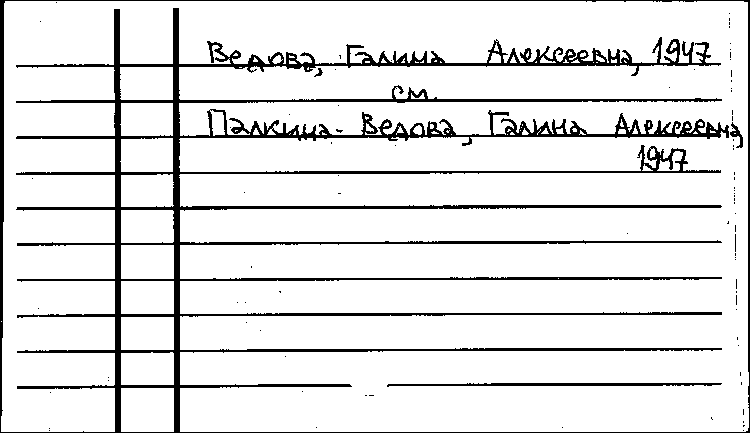 Ведова, Галина Алексеевна, 1947
см.
Палкина-Ведова, Галина Алексеевна,
1947